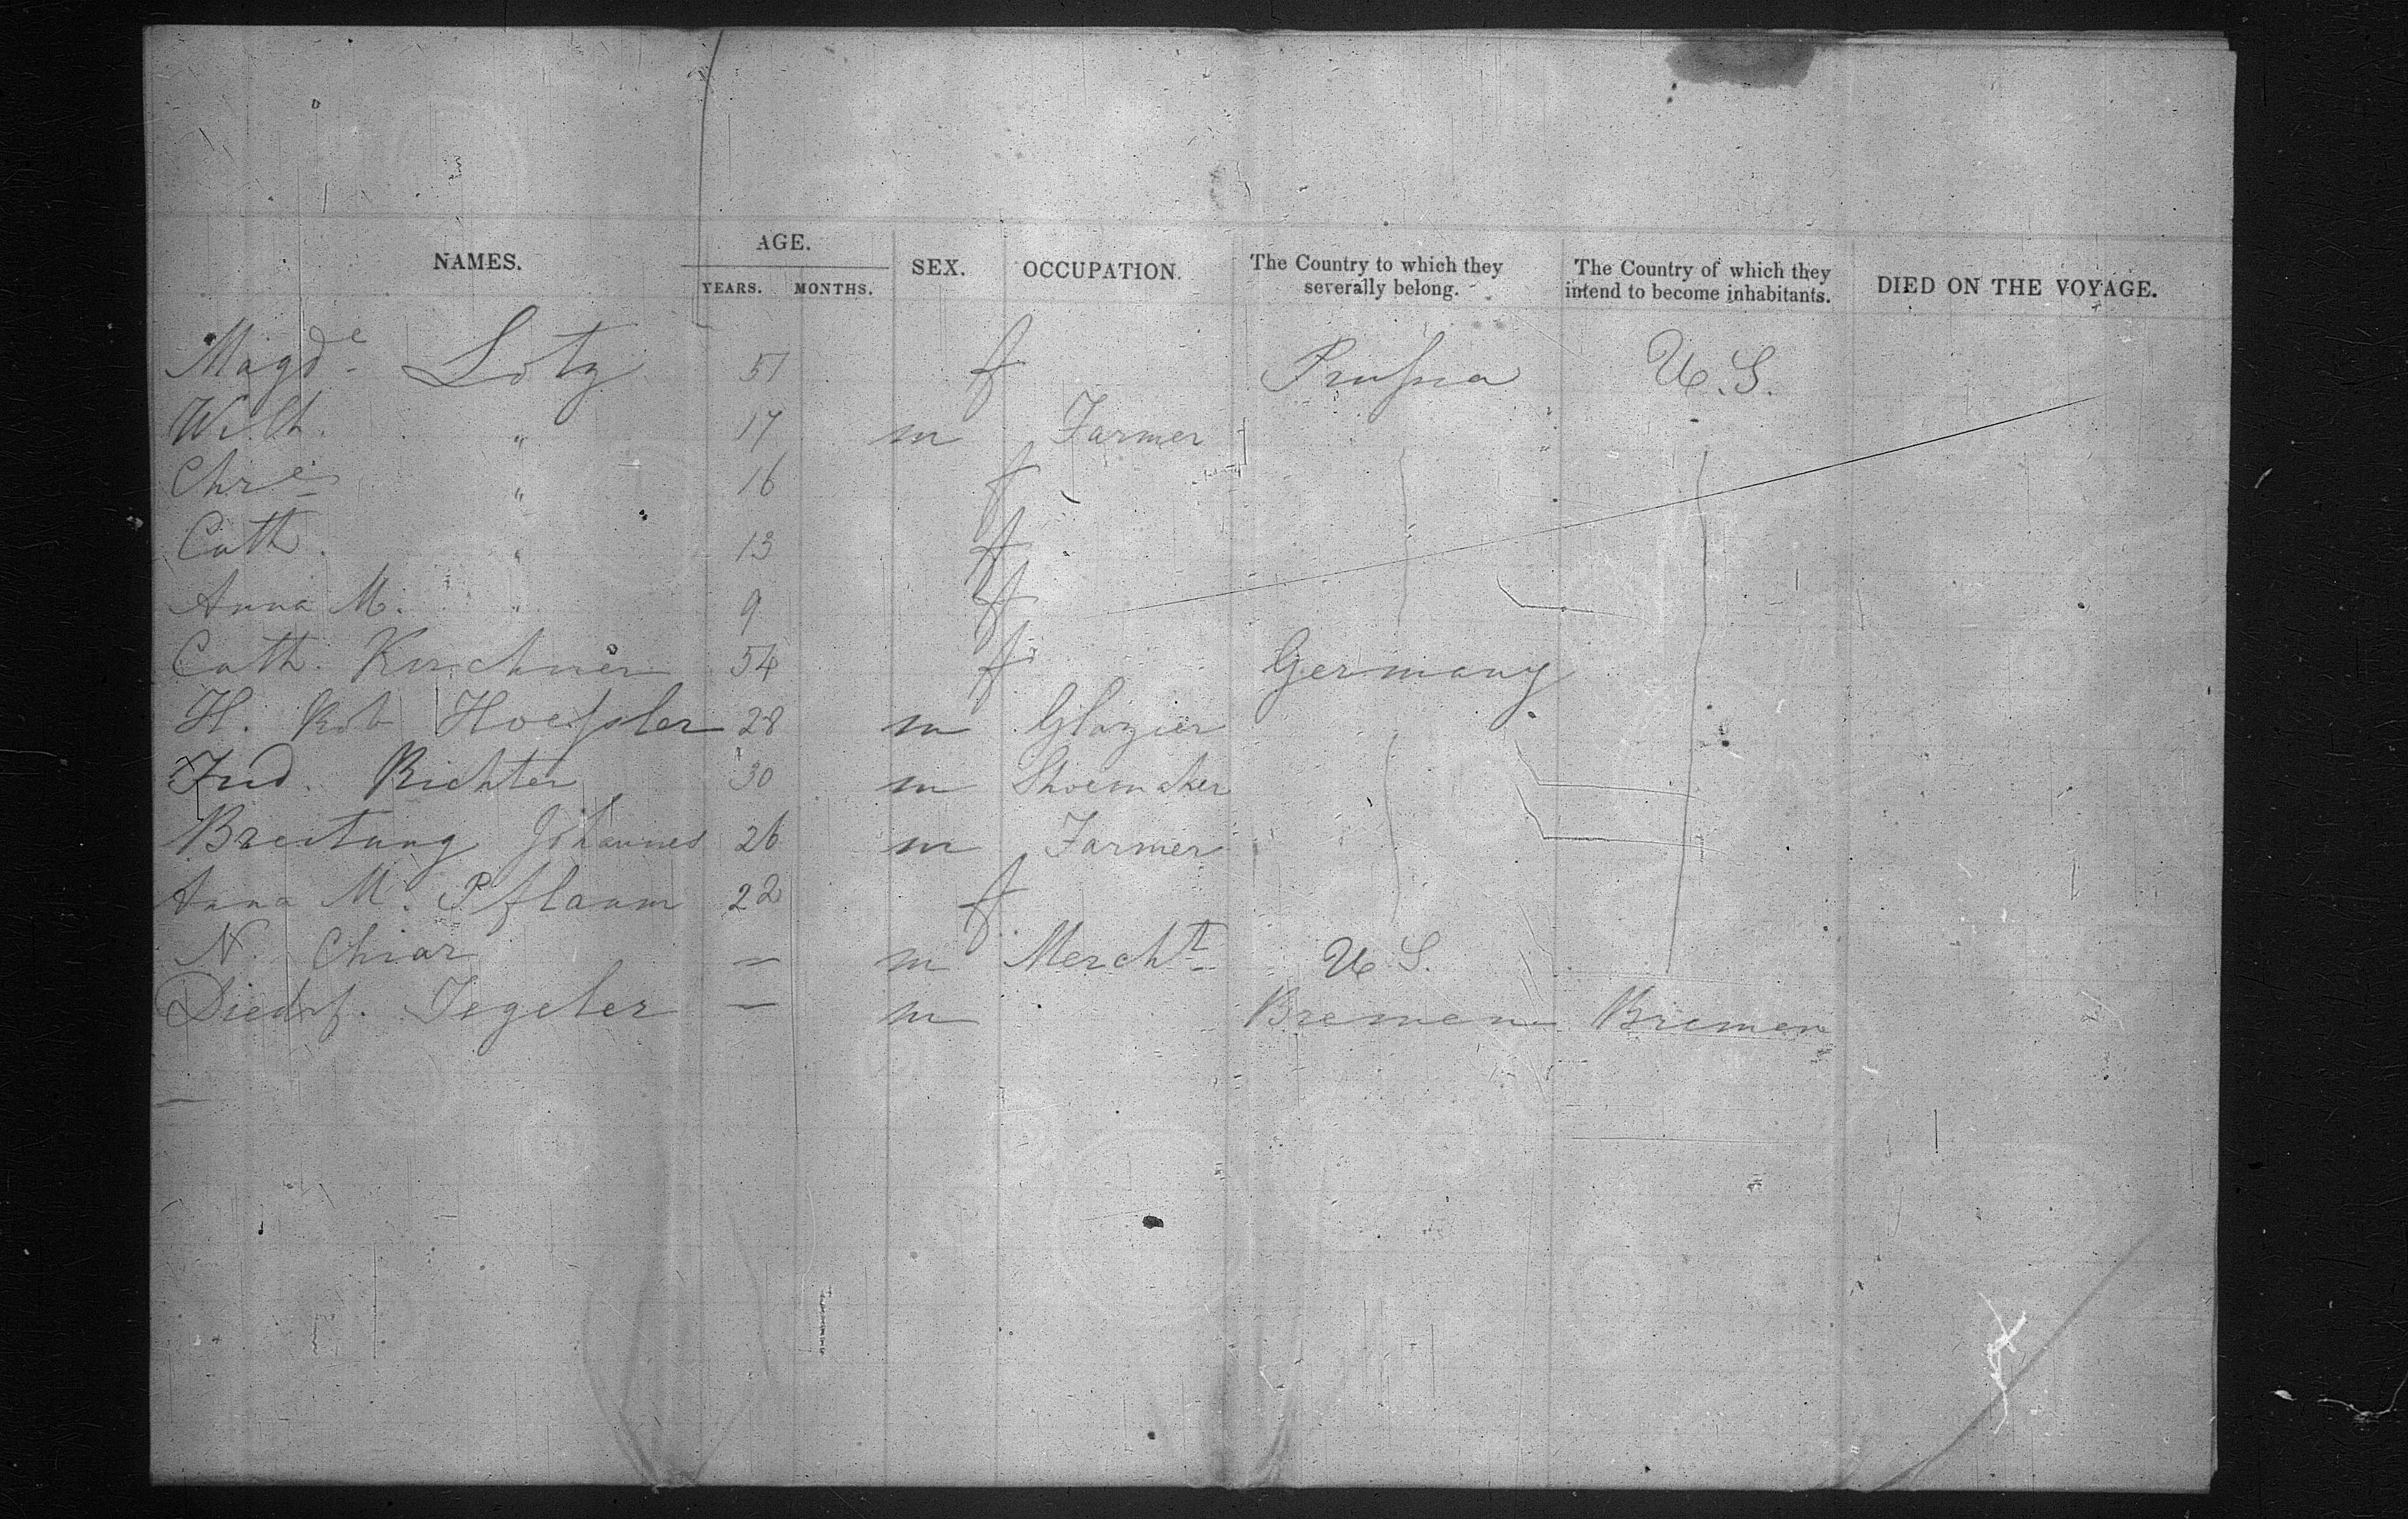 NAMES. AGE. YEARS. MONTHS. SEX. OCCUPATION. The Country to which they severally belong. The Country of which they intend to become inhabitants. DIED ON THE VOYAGE.
Magde Lotz 51 f Prussia U.S.
Wilh. " 17 m Farmer
Chre " 16 f
Cath. " 13 f
Anna M. " 9 f
Cath. Kirchner 54 f Germany
H. Rob Hoessler 28 m Glazier
Fred. Richter 30 m Shoemaker
Breitung Johannes 26 m Farmer
Anna M. Pflaum 22 f
N. Chiar — m Mercht U.S.
Tegeler — m Bremen Bremen